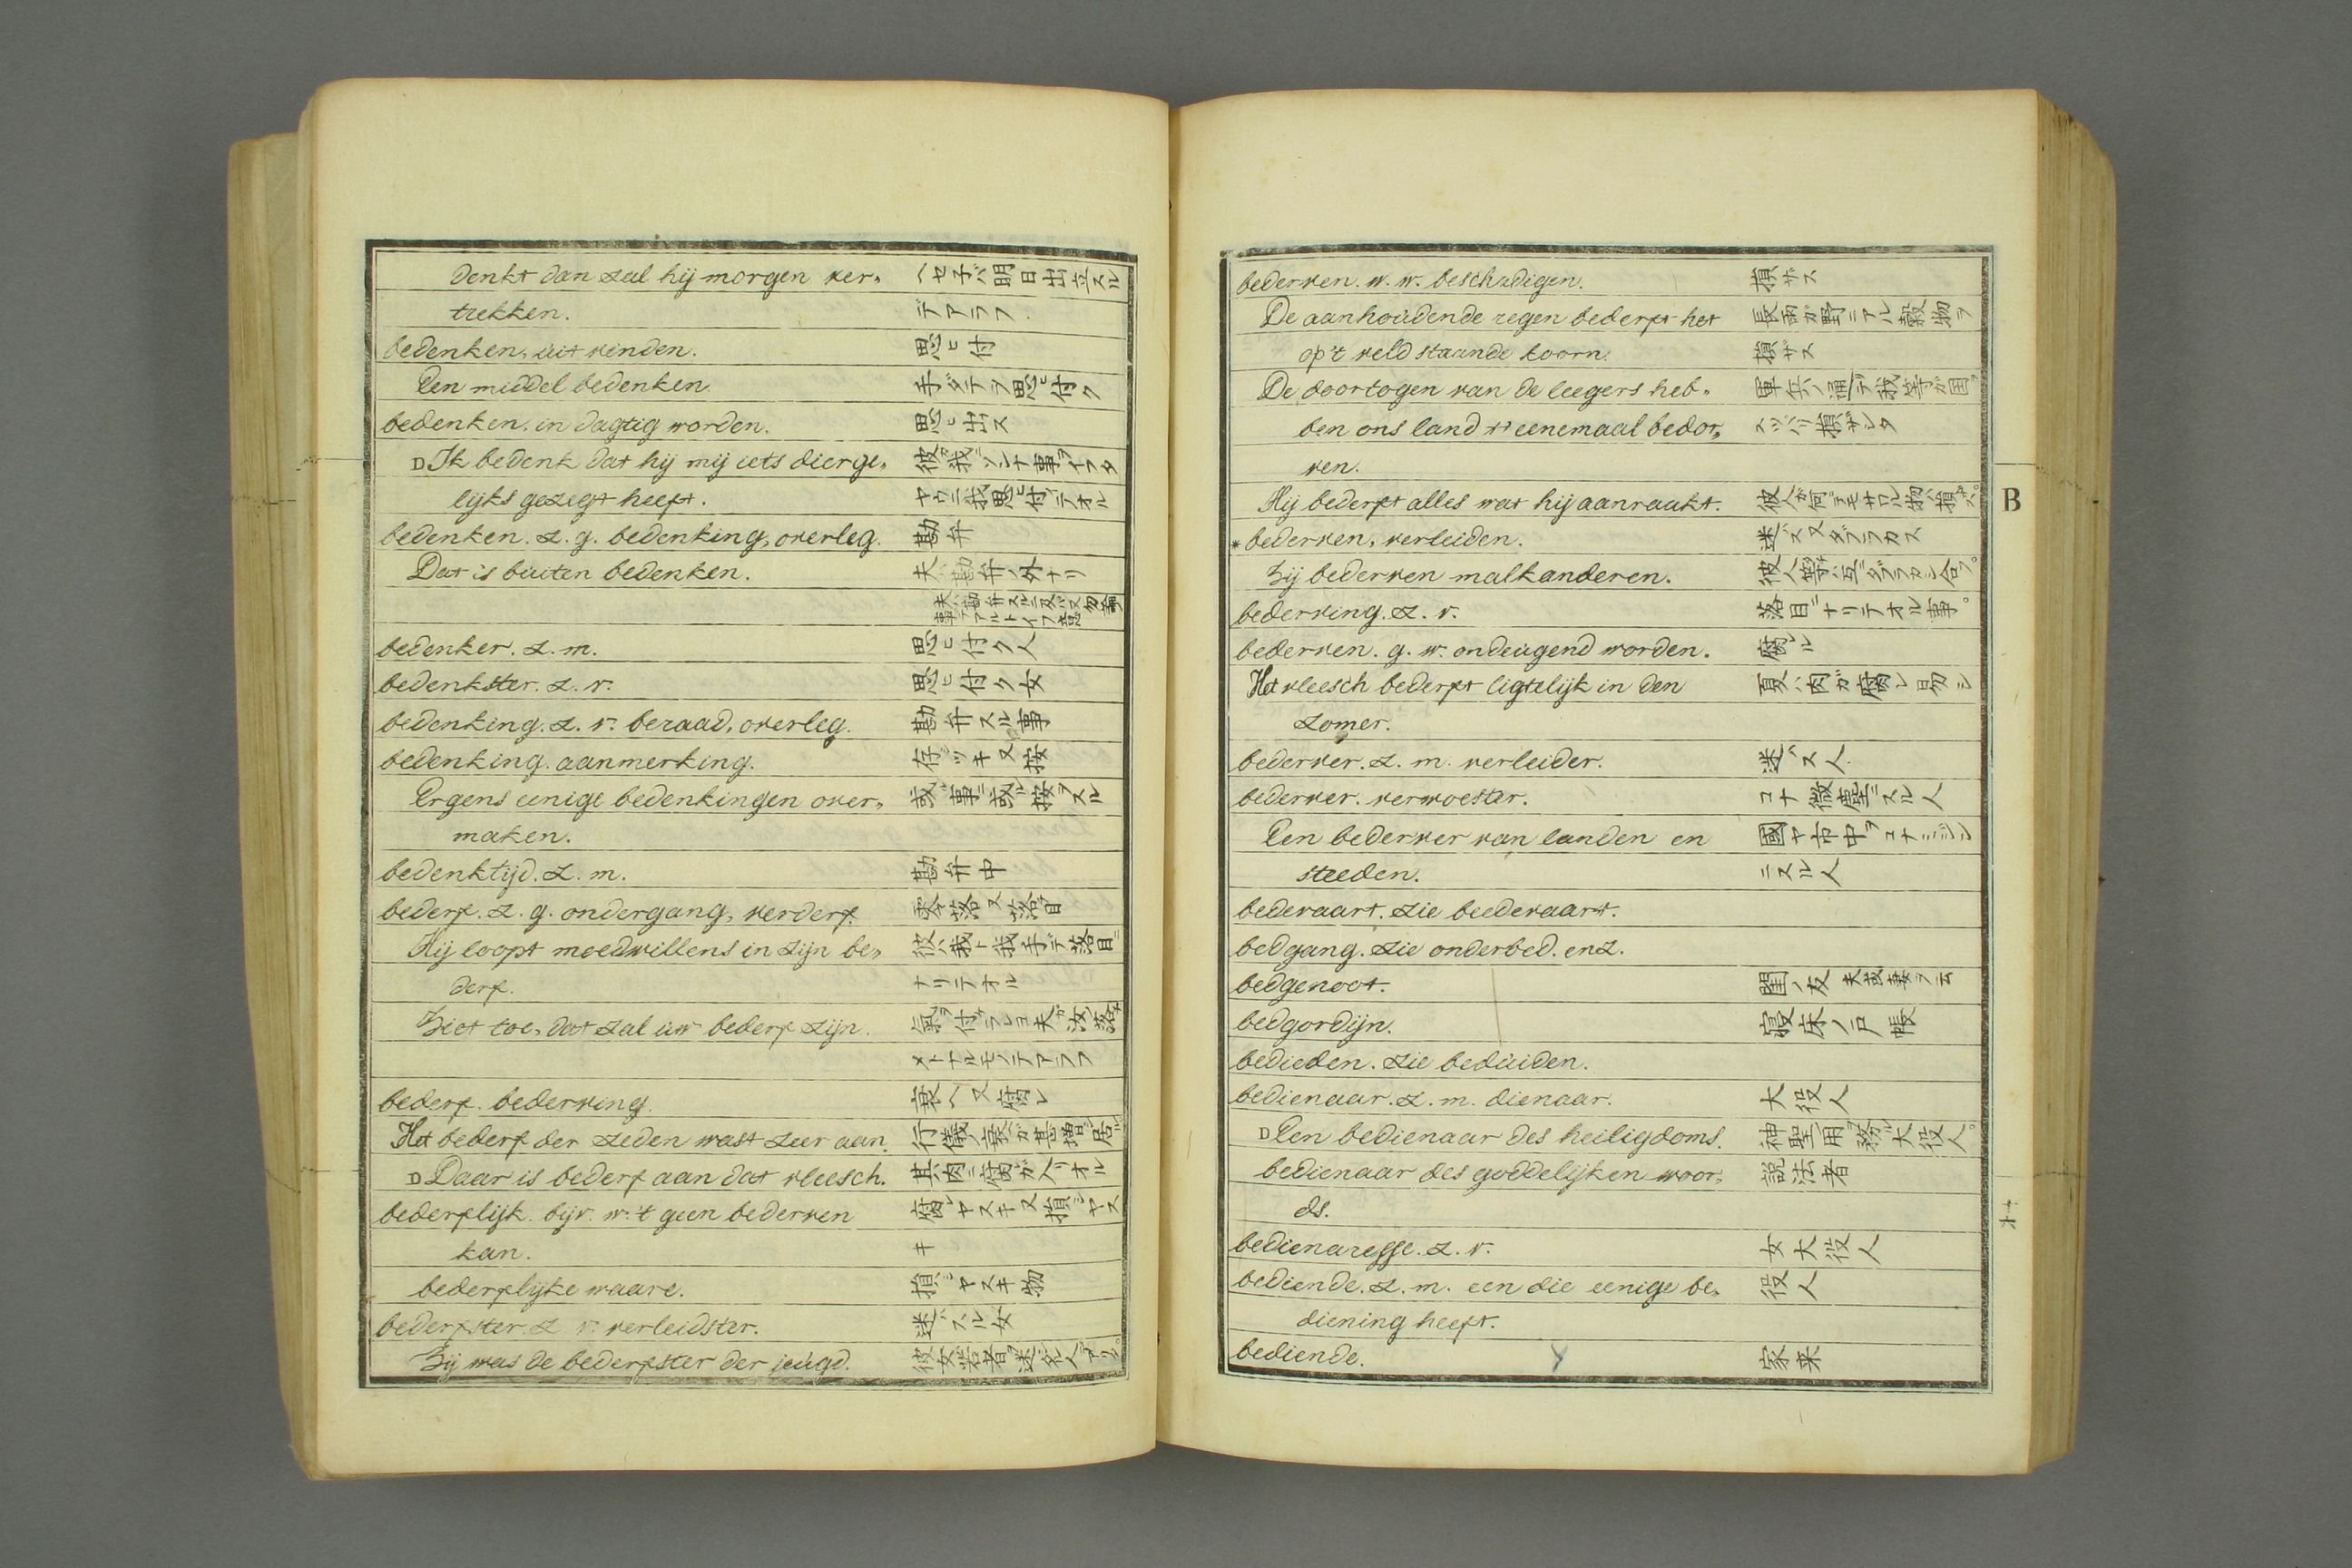 denkt dan zal hij morgen ver„ ヘセ子バ明日出立スル
trekken. デアラフ.
bedenken, uit vinden. 思ヒ付
Een middel bedenken. 手ダテヲ思ヒ付ク
bedenken. in dagtig worden. 思ヒ出ス
D Ik bedenk dat hij mij iets dierge„
lijks gezegt heeft.
bedenken. z. g. bedenking, overleg. 勘弁
Dat is buiten bedenken. 夫ハ勘弁ノ外ナリ
bedenker. z. m. 思ヒ付ク人
bedenkster. z. v. 思ヒ付ク女
bedenking. z. v. beraad, overleg. 勘弁スル事
bedenking. aanmerking. 存ジツキ又按
Ergens eenige bedenkingen over„
maken.
bedenktijd. z. m. 勘弁中
bederf. z. g. ondergang, verderf. 零落又落目
Hij loopt moedwillens in zijn be„ 彼ハ我ト我手デ落目ニ
derf. ナリテオル
Ziet toe, dat zal uw bederf zijn.
メトナルモノデアラフ
bederf. bederving. 衰ヘ又腐レ
Het bederf der zeden wast zeer aan.
D Daar is bederf aan dat vleesch.
bederflijk. bijv. w. 't geen bederven 腐レヤスキ又損ジヤス
kan. キ
bederflijke waare. 損ジヤスキ物
bederfster z v. verleidster. 迷ハスル女
Zij was de bederfster der jeugd.
bederven. w. w. beschadigen. 損ザス
De aanhoudende regen bederft het 長雨ガ野ニアル穀物ヲ
op't veld staande koorn. 損ザス
De doortogen van de leegers heb„
ben ons land tt eenemaal bedor„
ven.
Hij bederft alles wat hij aanraakt.
* bederven, verleiden. 迷ハス又タブラカス
Zij bederven malkanderen.
bederving. z. v. 落目ニナリテオル事。
bederven. g. w. ondeugend worden. 腐ル
Het vleesch bederft ligtelijk in den 夏ハ肉ガ腐レ易シ
zomer.
bederver. z. m. verleider. 迷ハス人
bederver. verwoester. コナ微塵ニスル人
Een bederver van landen en 國ヤ市中ヲコナミジン
steeden. ニスル人
bedevaart. zie beedevaart.
bedgang. zie onderbed. enz.
bedgenoot. 閨ノ友 夫或妻ヲ云
bedgordijn. 寝床ノ戸帳
bedieden. zie beduiden.
bedienaar. z. m. dienaar. 大役人
D Een bedienaar des heiligdoms.
bedienaar des goddelijken woor„ 説法者
ds.
bedienaresse. z. v. 女大役人
bediende. z. m. een die eenige be„ 役人
diening heeft.
bediende. 家来
B